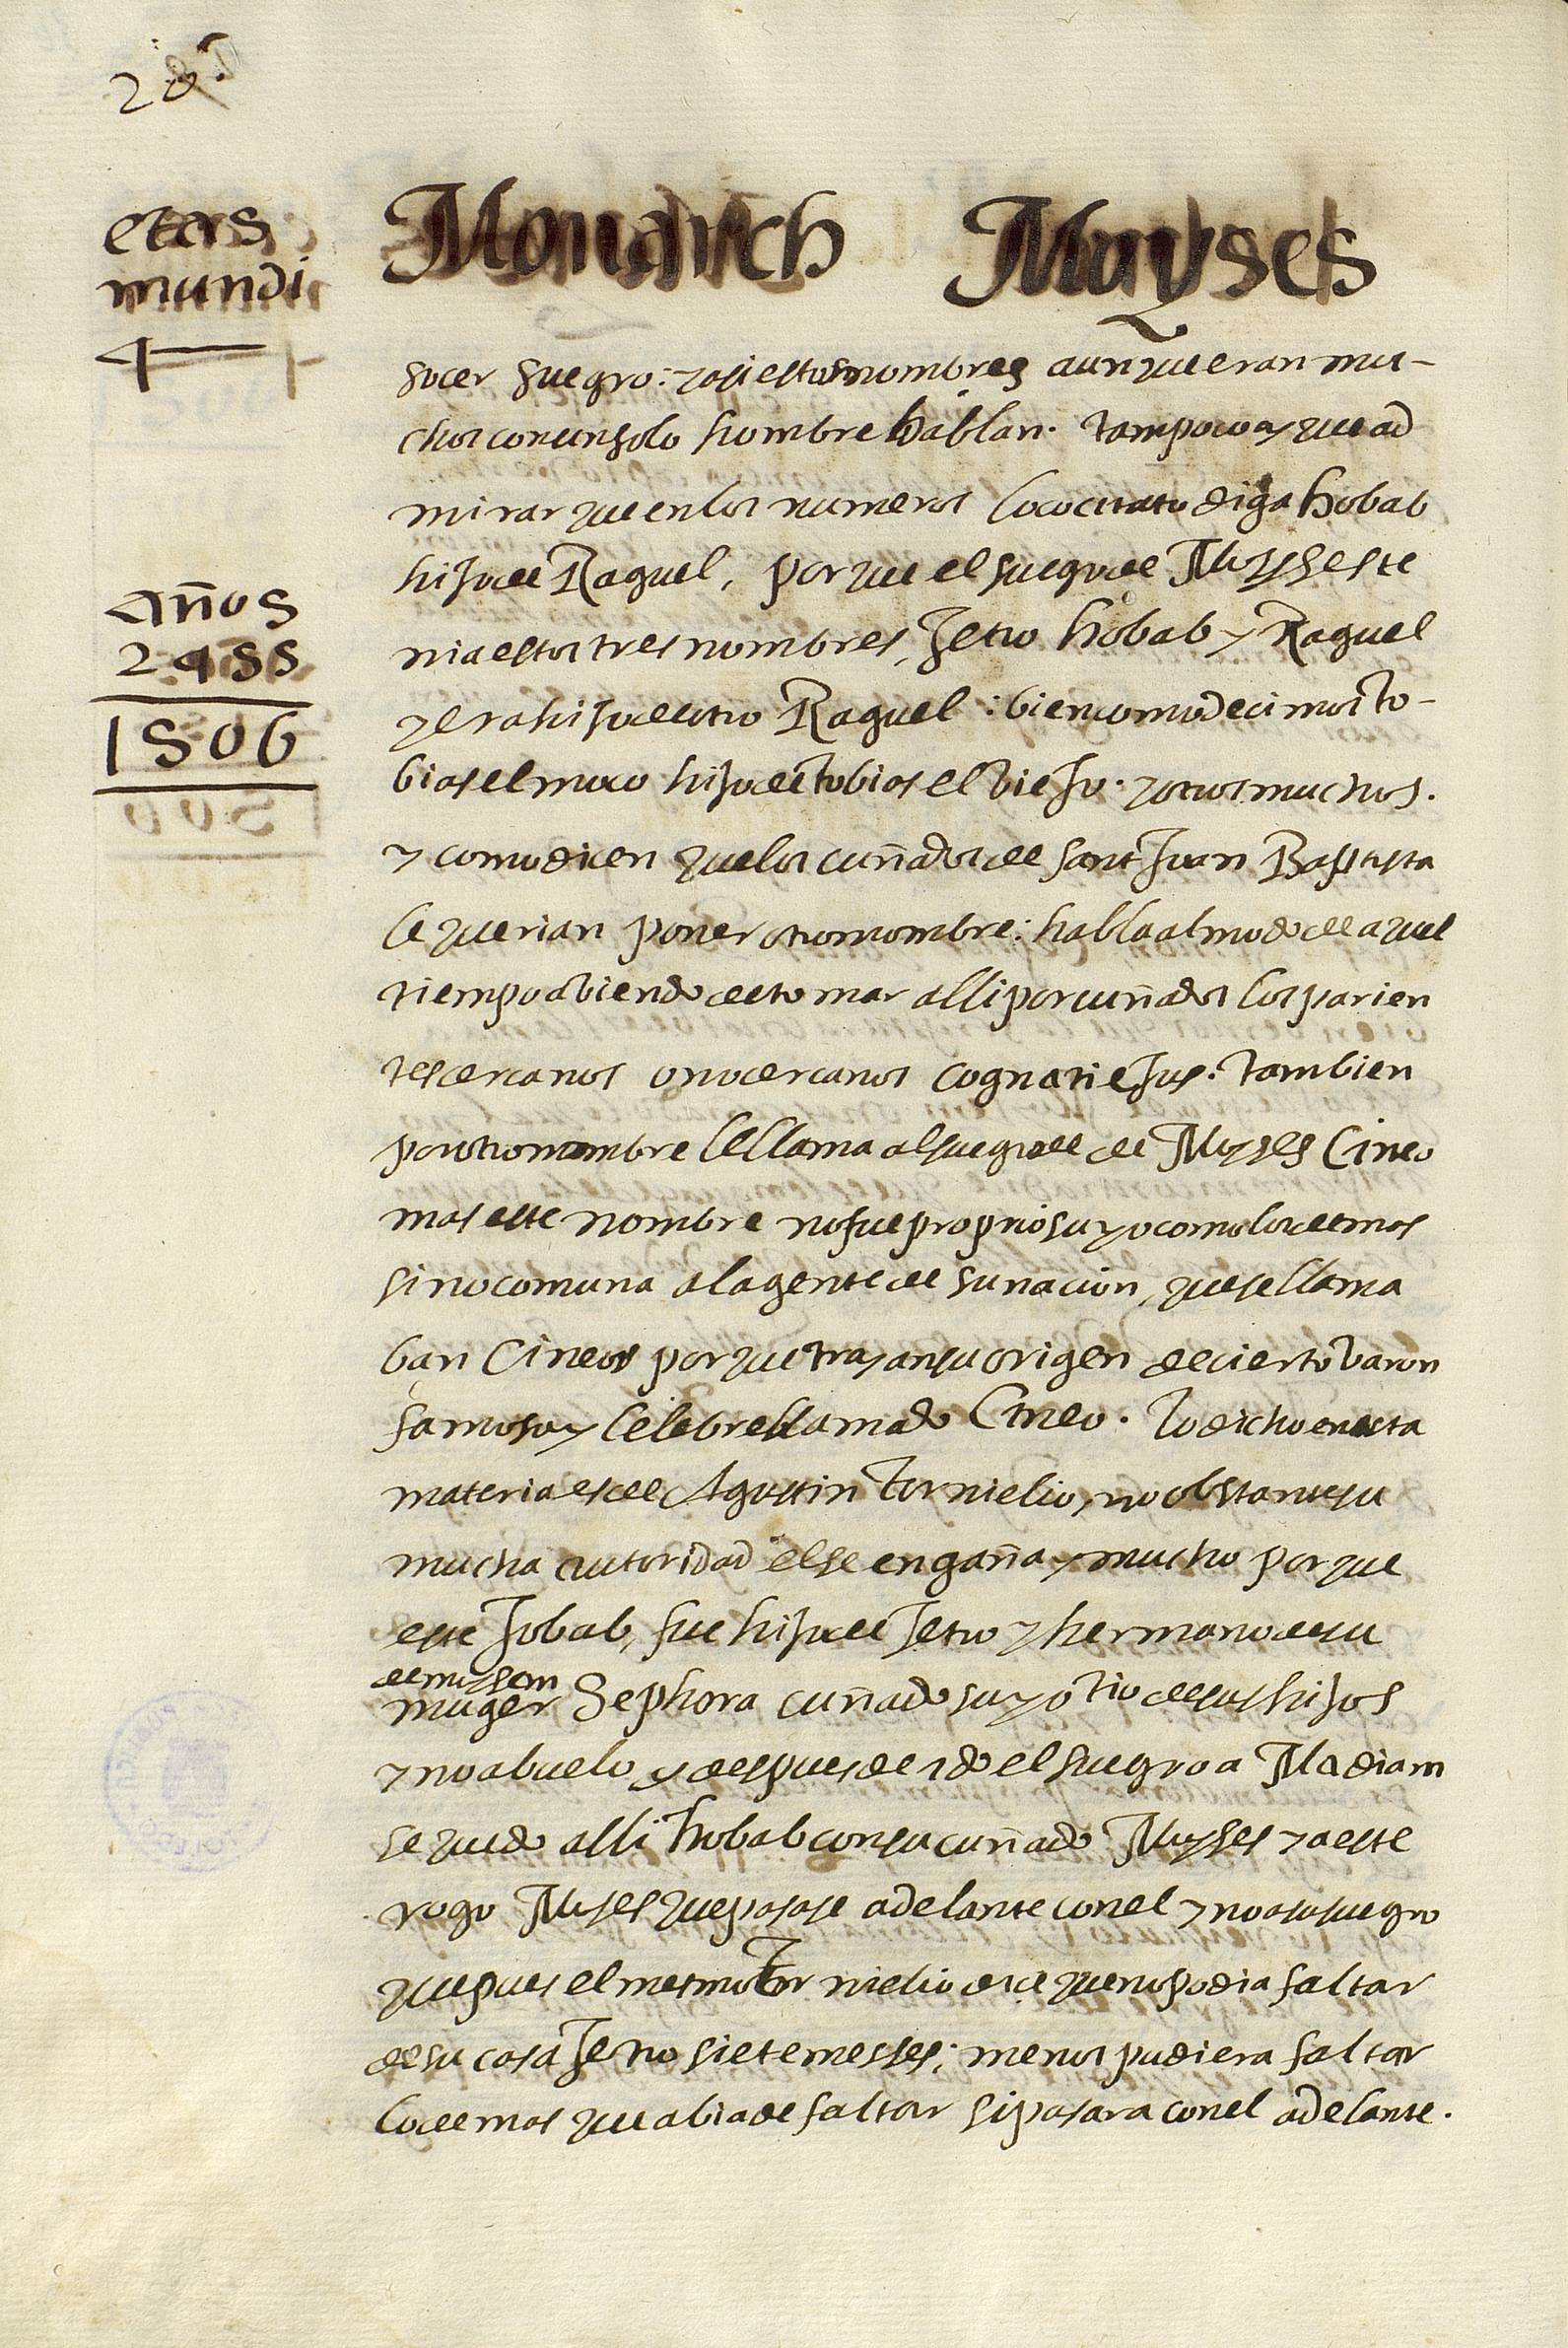 etas
mundi
4
años
2455
1506
Monarch Moyses
socer suegro: y asi estos nombres aunque eran mu-
chos con un solo hombre hablan. tampoco ay que ad
mirar que en los numeros loco citato diga hobab
hijo de Raguel, porque el suegro de Moyses te
nia estos tres nombres, Jetro hobab y Raguel
y era hijo de otro Raguel: bien como decimos to-
bias el moço hijo de tobias el viejo. y otros muchos.
y como dicen que los cuñados de sant Juan Baptista
le querian poner otro nombre: habla al modo de aquel
tiempo abiendo de tomar alli por cuñados los parien
tes cercanos o no cercanos cognati ejus. tambien
por otro nombre le llama al suegro de de Moyses Cineo
mas este nombre no fue proprio suyo como los demas
sino comun a la gente de su nacion, que se llama
ban Cineos porque trayan su origen de cierto varon
famoso y celebre llamado Cineo. lo dicho en esta
materia es de Agustin tornielio, no obstante su
mucha autoridad el se engaña y mucho porque
este Jobab, fue hijo de Jetro y hermano de su
de moysen
muger Sephora cuñado suyo tio de sus hijos
y no abuelo y despues de ydo el suegro a Madiam
se quedo alli hobab con su cuñado Moyses y a este
rogo Moyses que pasase adelante con el y no a su suegro
que pues el mesmo tornielio dice que no podia faltar
de su casa Jetro siete messes; menos pudiera faltar
lo demas que abia de faltar si pasara con el adelante.